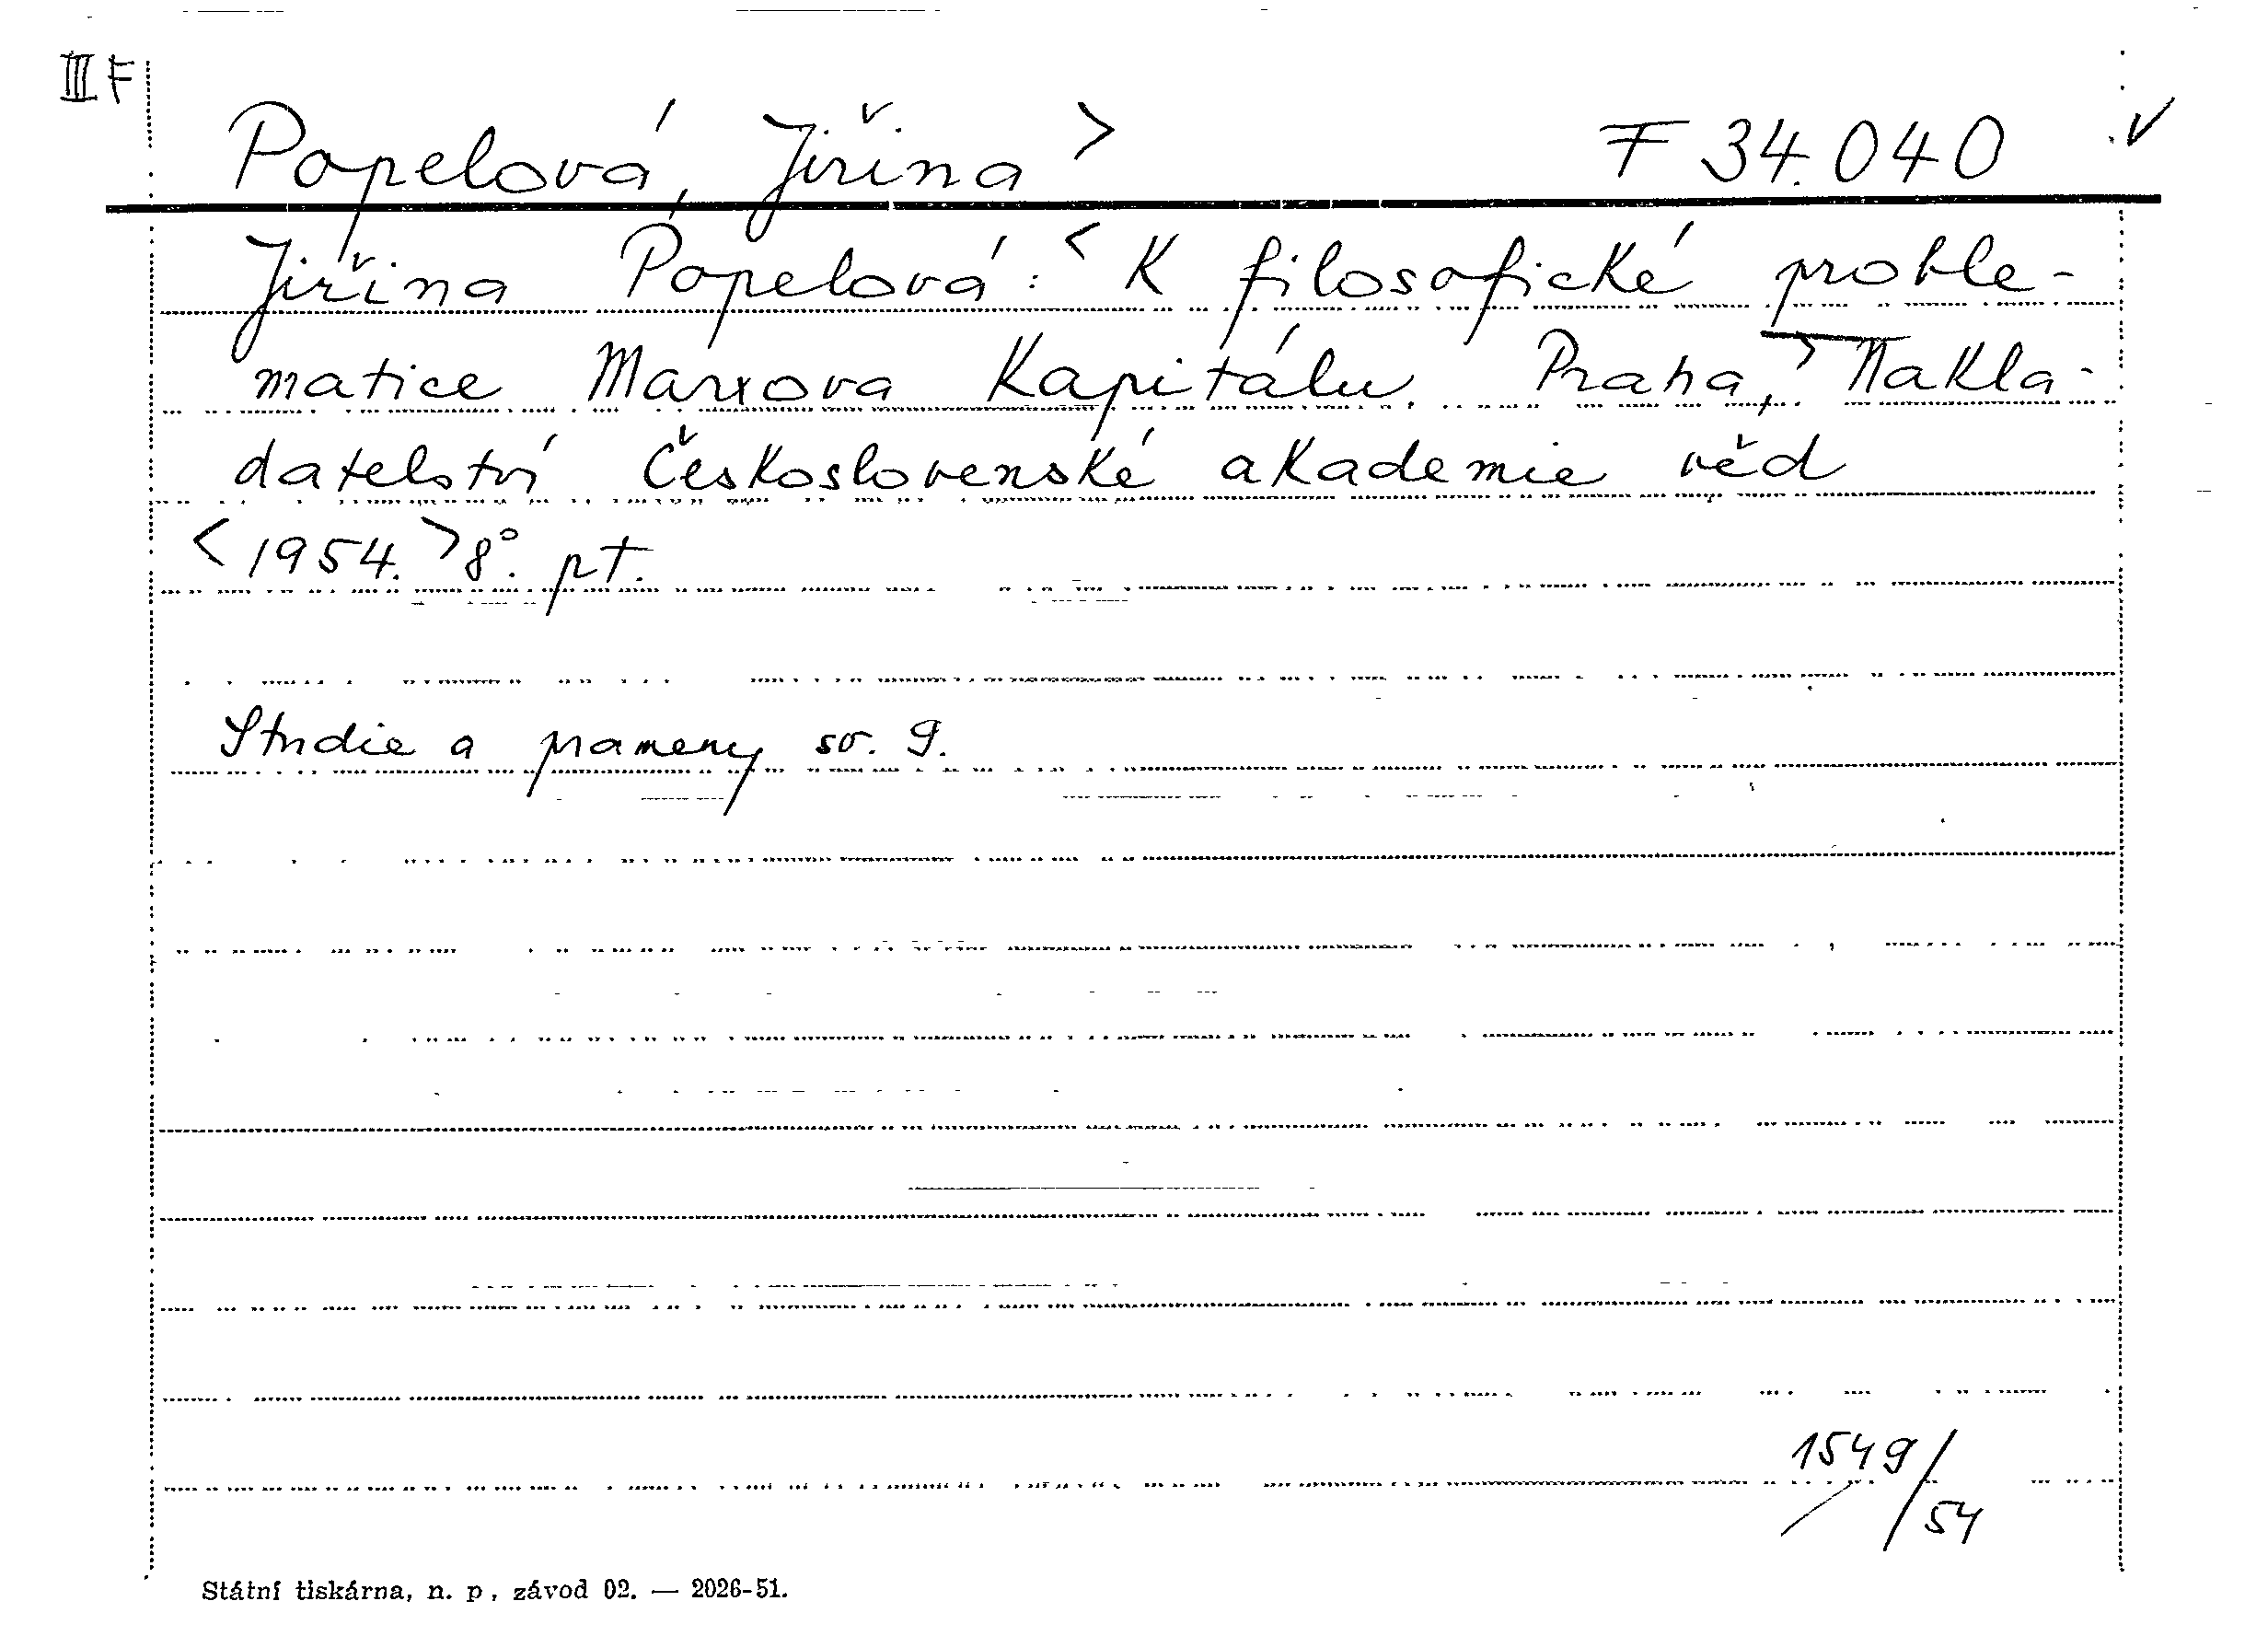 III F
Popelová, Jiřina > F 34.040 √
Jiřina Popelová: < K filosofické proble-
matice Marxova Kapitálu. Praha, > Nakla-
datelství Československé akademie věd
< 1954. > 8°. pt.
Studie a prameny sv. 9.
1549/54
Státní tiskárna, n. p., závod 02. — 2026-51.